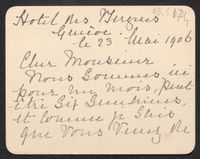 Hotel des Bergues
Genève
le 23 Mai 1906
Cher Monsieur
Nous sommes ici
pour un mois, peut
être six semaines,
et comme je
que vous